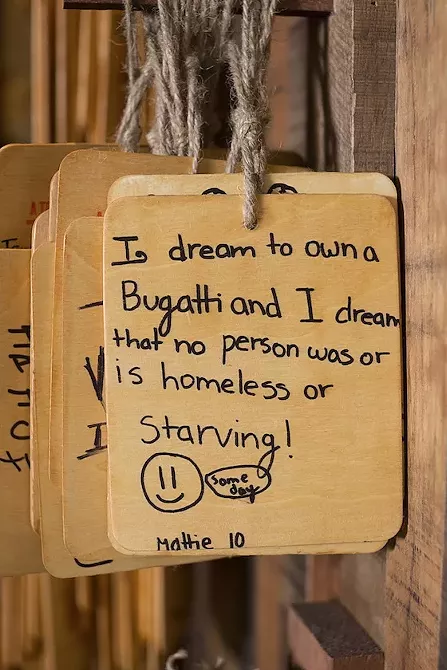 I dream to own a
Bugatti and I dream
that no person was or
is homeless or
Starving!
Some
day
Mattie 10